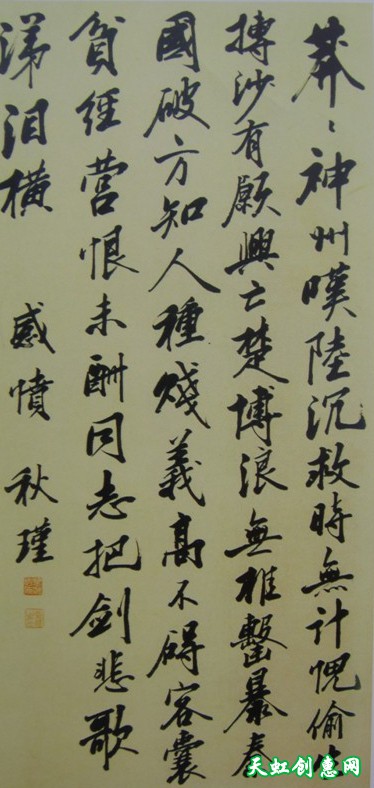 莽々神州嘆陸沉救時無計愧偷生
摶沙有願興亡楚博浪無椎擊暴秦
國破方知人種賤義高不碍客囊
貧經營恨未酬同志把劍悲歌
涕泪橫
感憤 秋瑾
天虹创惠网